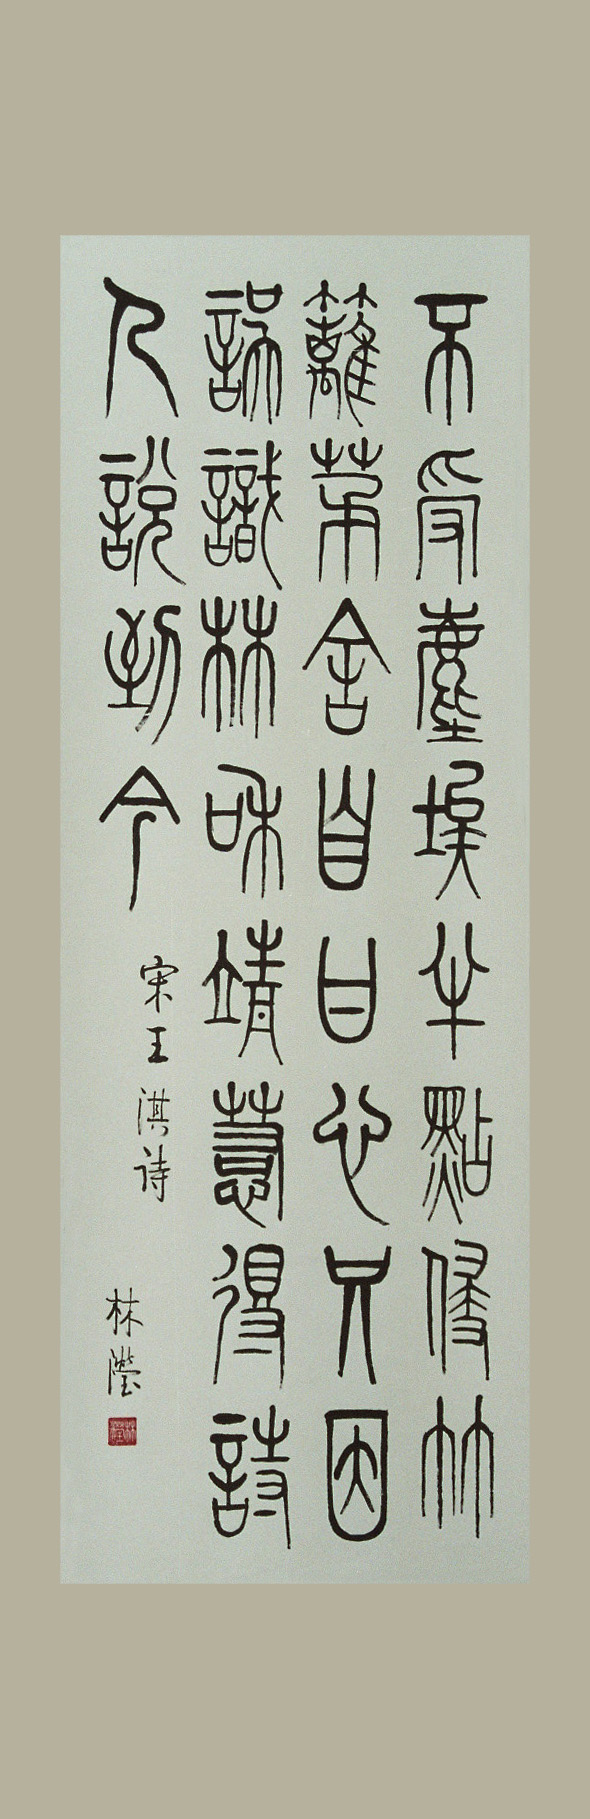 不受塵埃半點侵竹
籬茅舍自甘心只因
誤識林和靖惹得詩
人說到今
宋王淇诗
林瀅